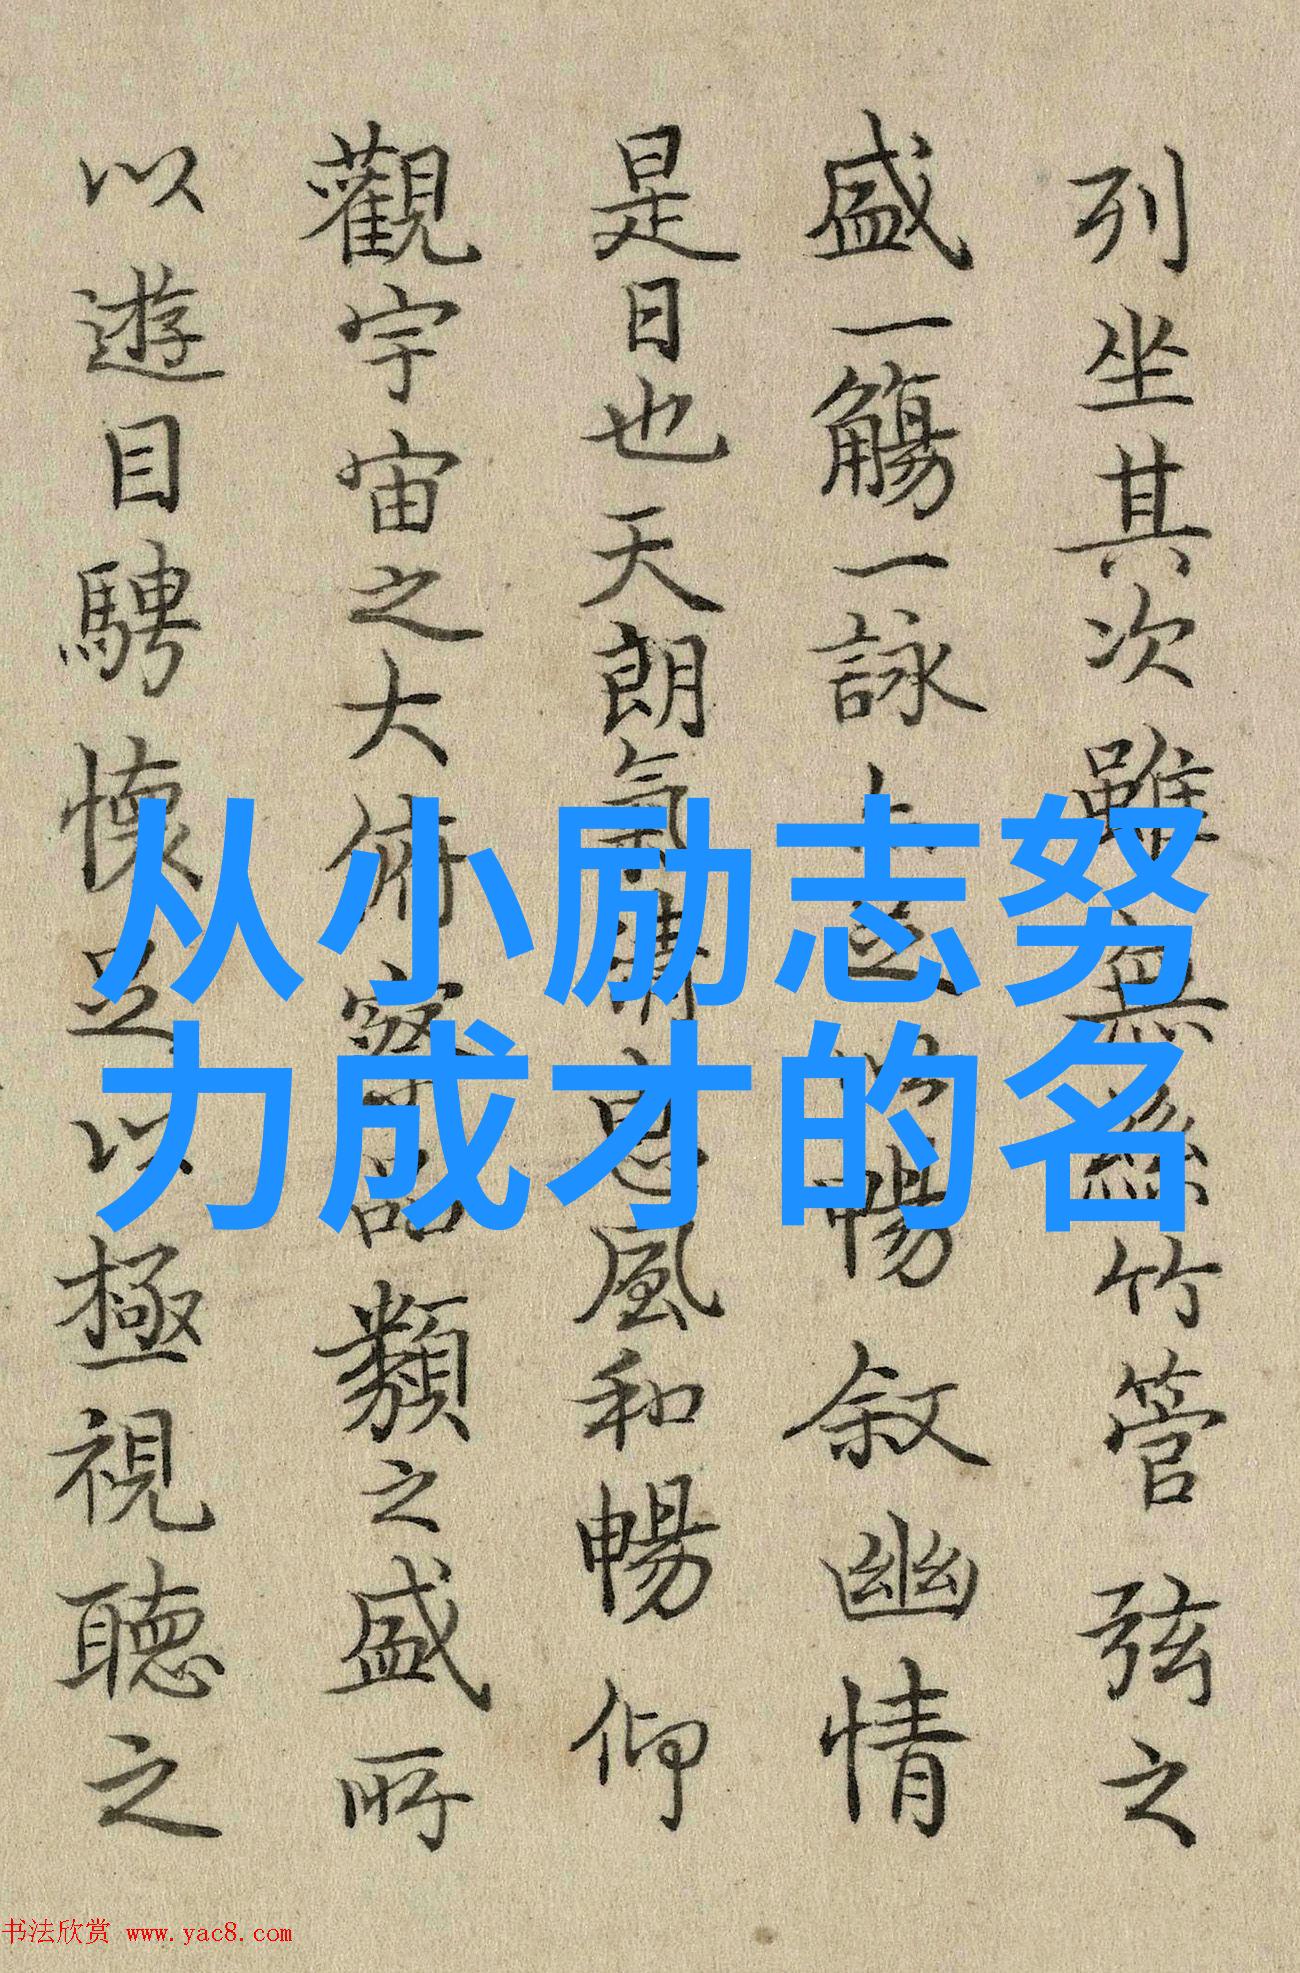 列坐其次雖無絲竹管弦之
盛一觴一詠以暢叙幽情
是日也天朗氣清惠風和暢仰
觀宇宙之大俯察品類之盛所
以遊目騁懷足以極視聽之
从小励志努
力成才的名
书法欣赏 www.yac8.com